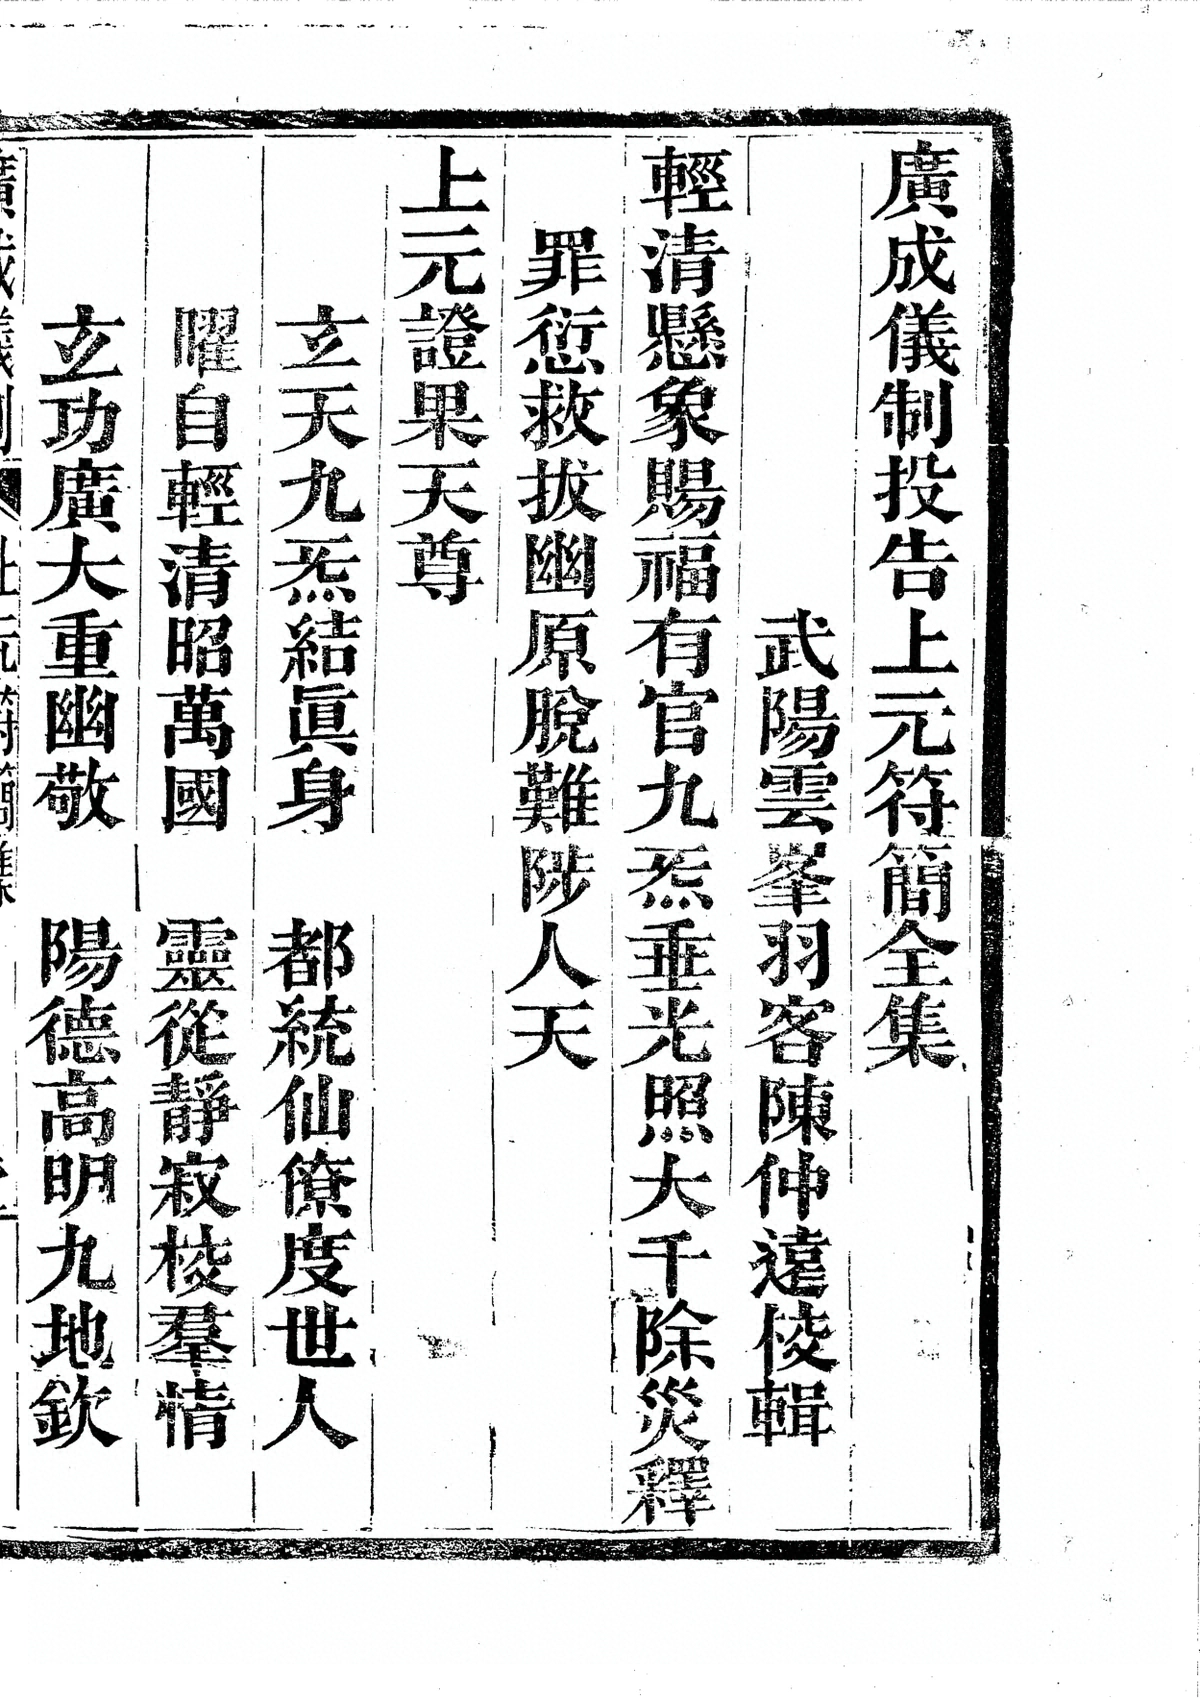 廣成儀制投告上元符簡全集
武陽雲峯羽客陳仲遠㥄輯
輕清懸象賜福有官九炁垂光照大千除災釋
罪愆救拔幽原脫難陟人天
上元證果天尊
玄天九炁結眞身　都統仙僚度世人
曜自輕清昭萬國　靈從靜寂㥄羣情
玄功廣大重幽敬　陽德高明九地欽